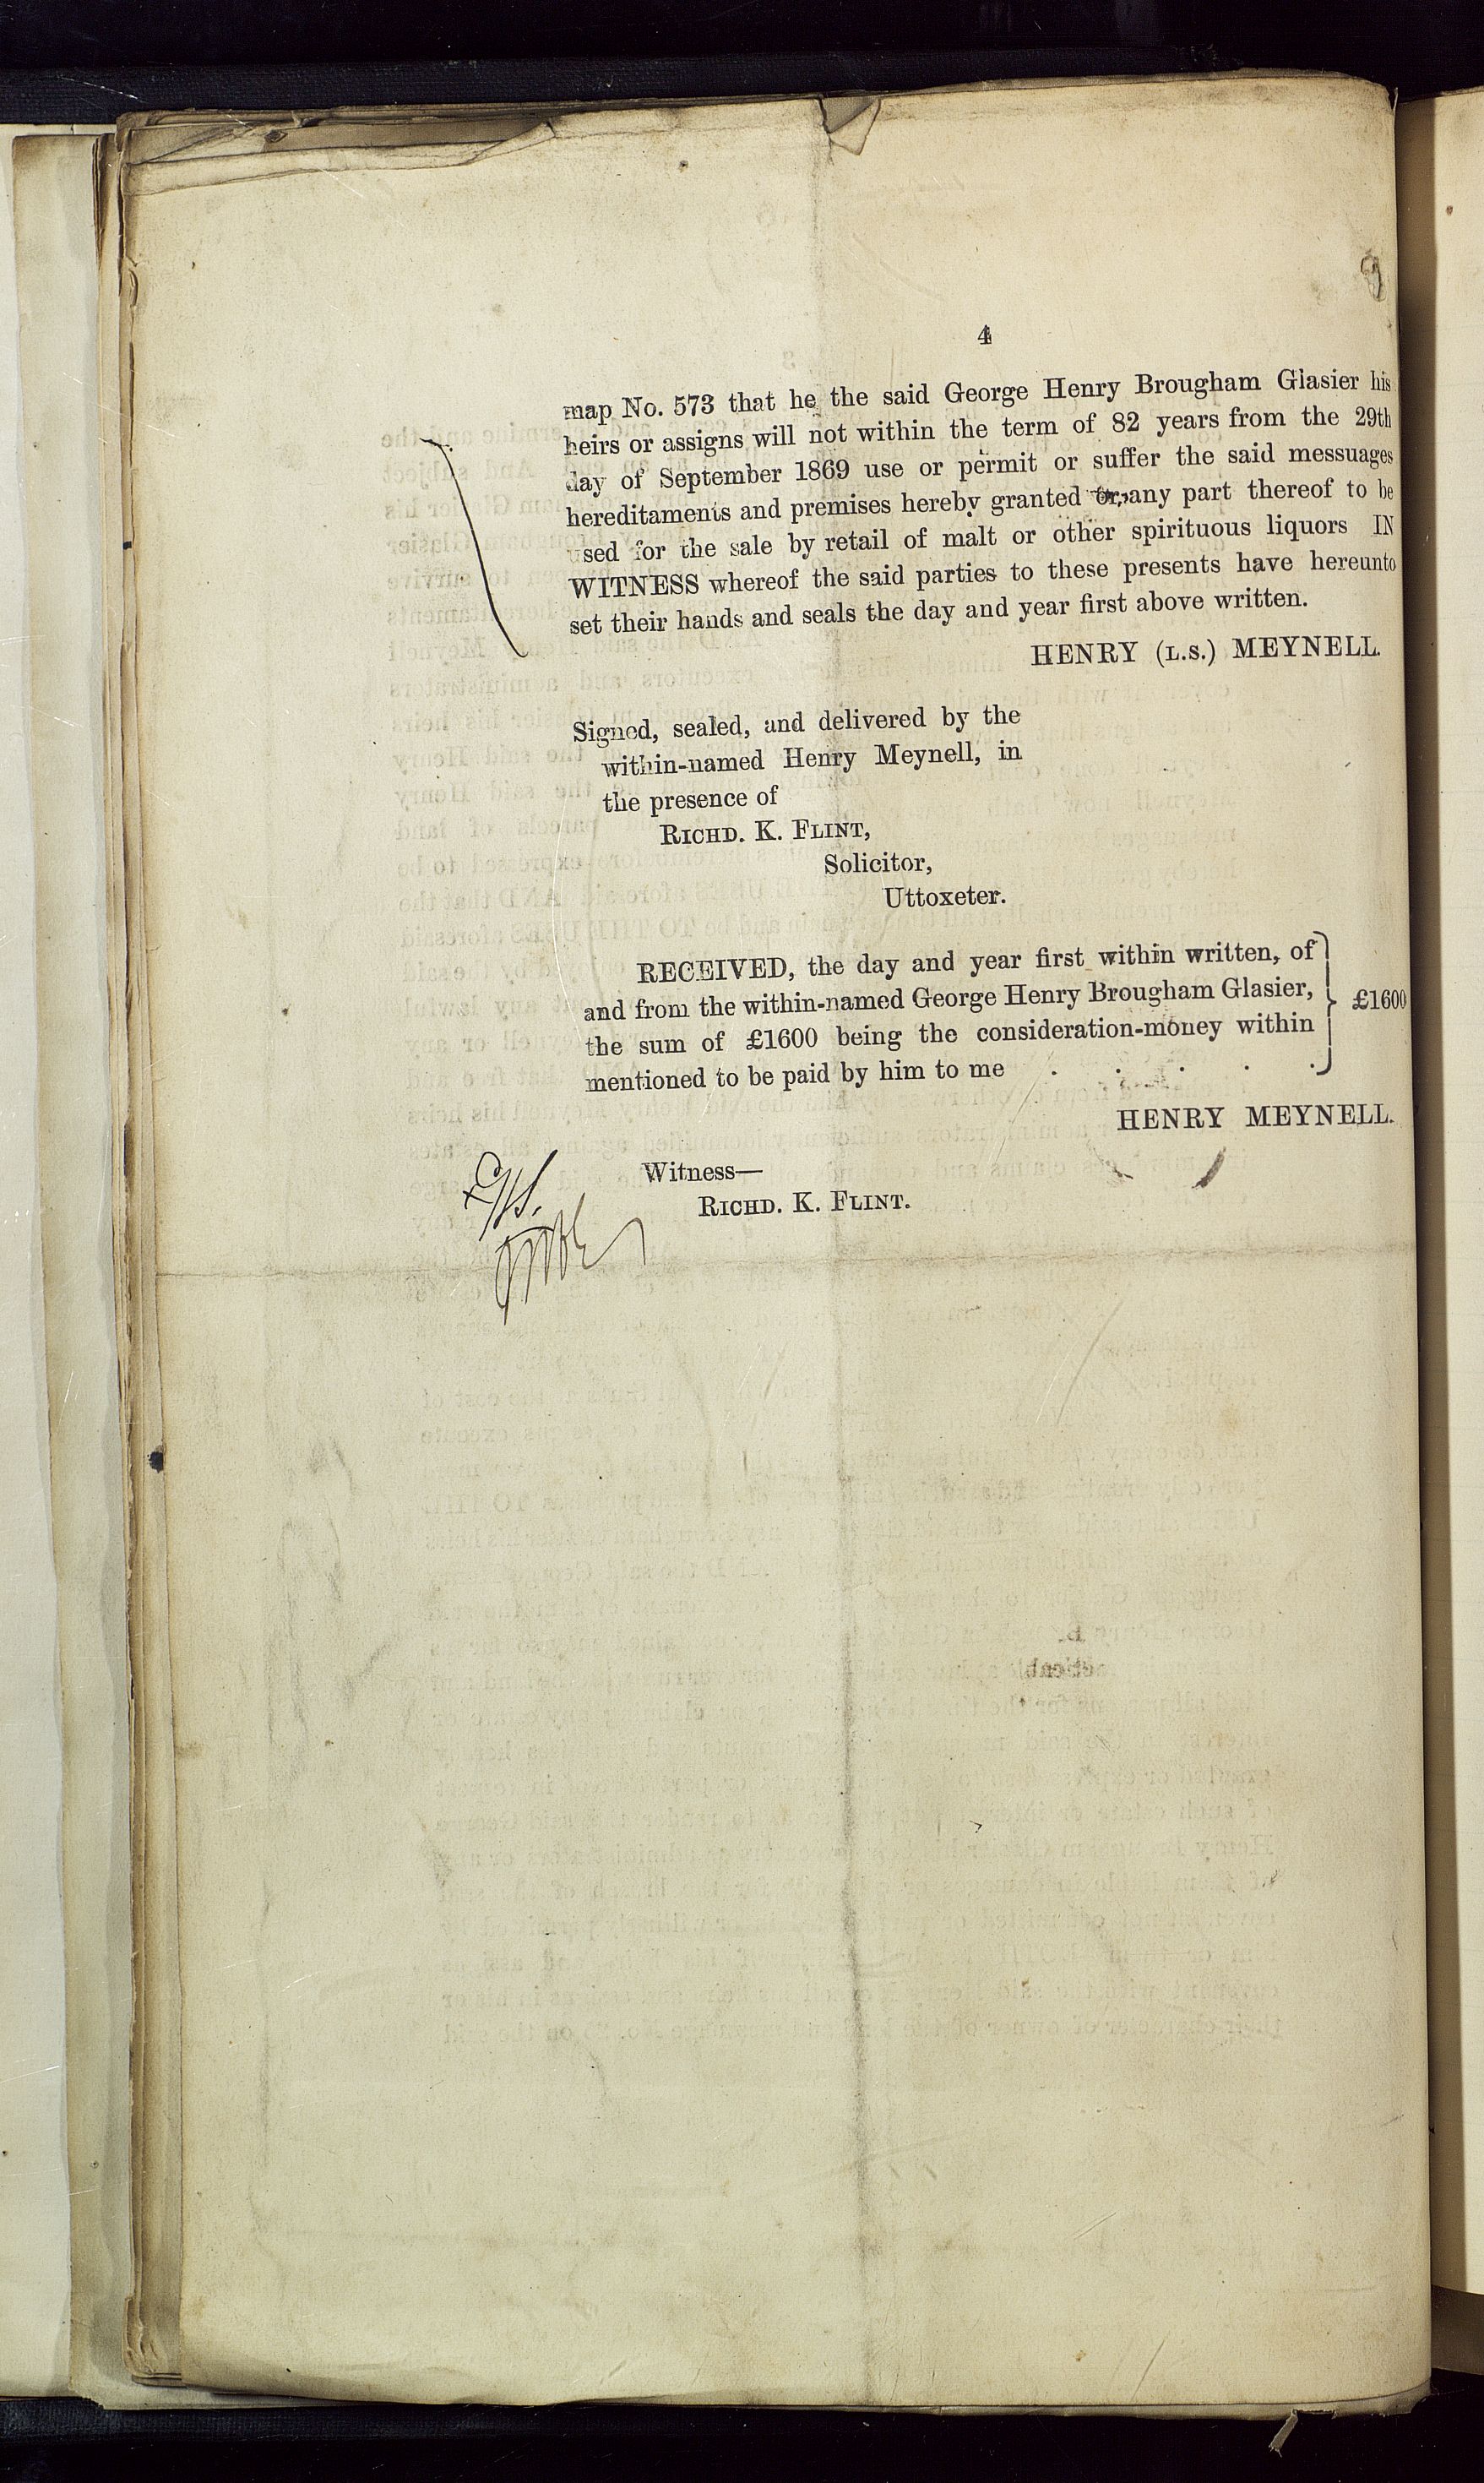 4
map No. 573 that he the said George Henry Brougham Glasier his
heirs or assigns will not within the term of 82 years from the 29th
day of September 1869 use or permit or suffer the said messuages
hereditaments and premises hereby granted or any part thereof to be
used for the sale by retail of malt or other spirituous liquors IN
WITNESS whereof the said parties to these presents have hereunto
set their hands and seals the day and year first above written.
HENRY (L.S.) MEYNELL.
Signed, sealed, and delivered by the
within-named Henry Meynell, in
the presence of
RICHD. K. FLINT,
Solicitor,
Uttoxeter.
RECEIVED, the day and year first within written, of
and from the within-named George Henry Brougham Glasier,
the sum of £1600 being the consideration-money within
mentioned to be paid by him to me . . . . .
£1600
HENRY MEYNELL.
Witness—
RICHD. K. FLINT.